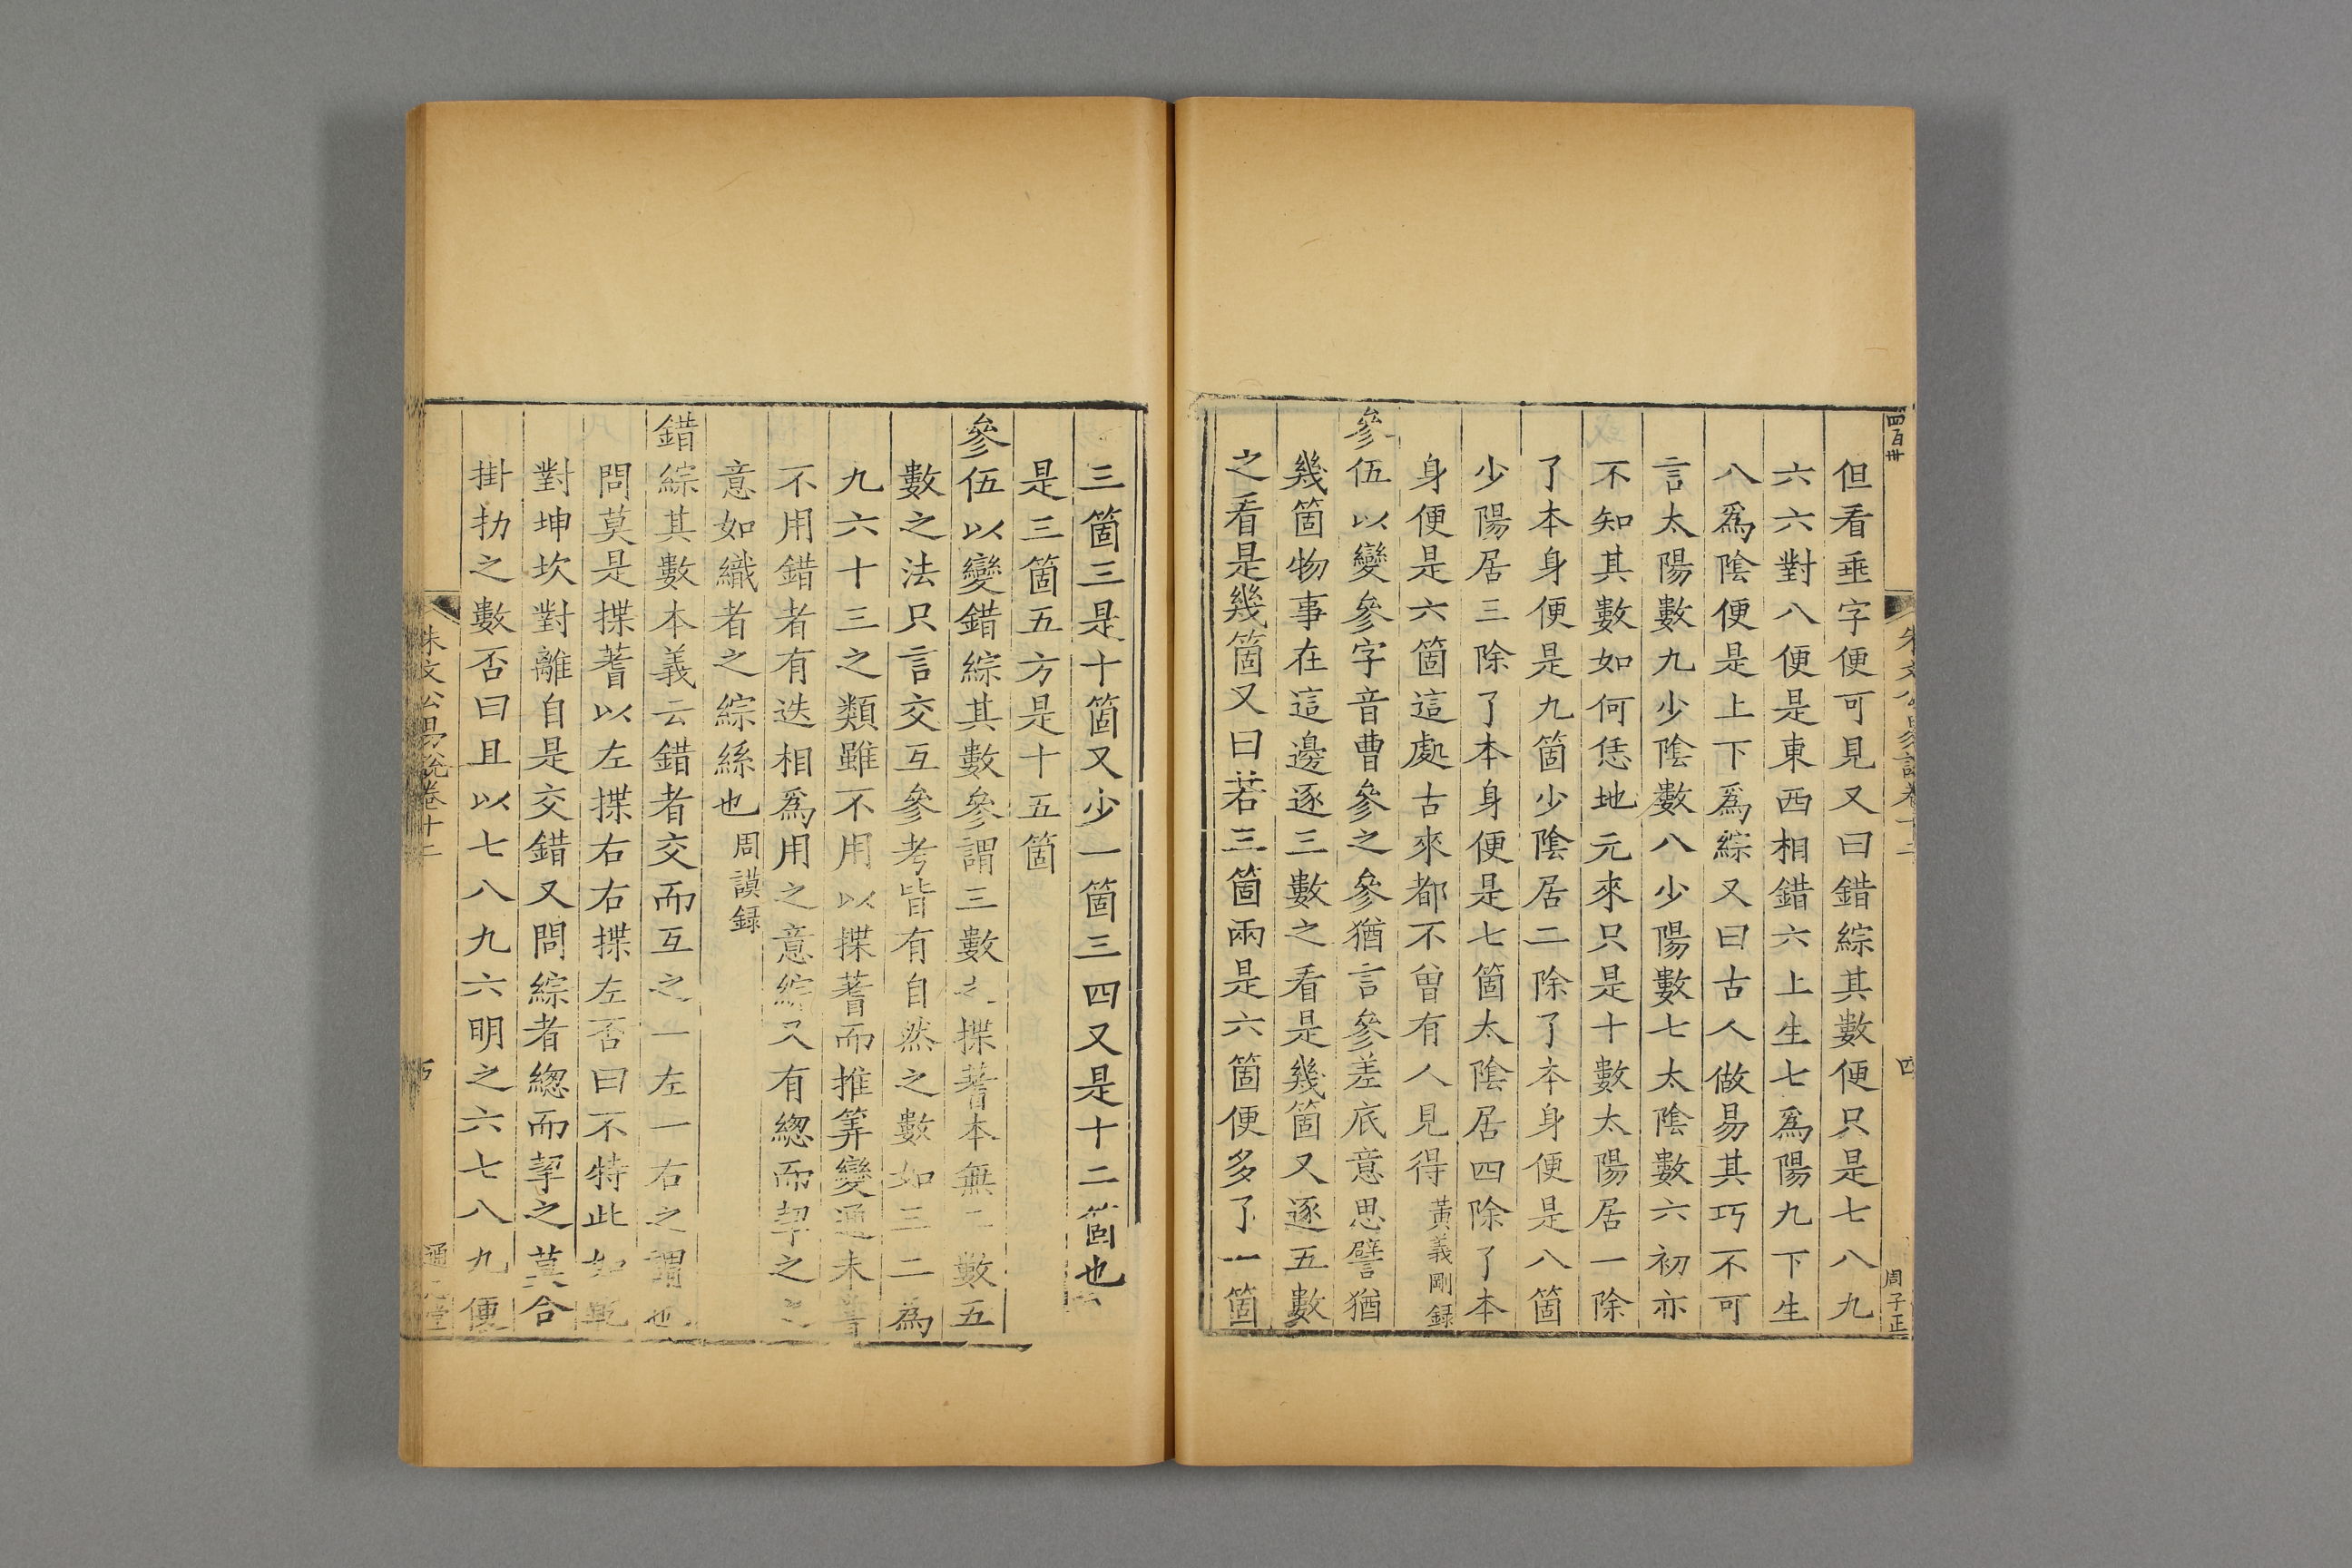 四百卅
朱文公易說卷十二
四
周子正
但看垂字便可見又曰錯綜其數便只是七八九
六六對八便是東西相錯六上生七爲陽九下生
八爲陰便是上下爲綜又曰古人做易其巧不可
言太陽數九少陰數八少陽數七太陰數六初亦
不知其數如何恁地元來只是十數太陽居一除
了本身便是九箇少陰居二除了本身便是八箇
少陽居三除了本身便是七箇太陰居四除了本
身便是六箇這處古來都不曾有人見得黃義剛録
參伍以變參字音曹參之參猶言參差底意思譬猶
幾箇物事在這邊逐三數之看是幾箇又逐五數
之看是幾箇又曰若三箇兩是六箇便多了一箇
三箇三是十箇又少一箇三四又是十二箇也
是三箇五方是十五箇
參伍以變錯綜其數參謂三數之揲蓍本無二數五
數之法只言交互參考皆有自然之數如三二為
九六十三之類雖不用以揲蓍而推筭變通未嘗
不用錯者有迭相爲用之意綜又有緫而挈之之
意如織者之綜絲也周謨録
錯綜其數本義云錯者交而互之一左一右之謂也
問莫是揲蓍以左揲右右揲左否曰不特此如乾
對坤坎對離自是交錯又問綜者緫而挈之莫合
掛扐之數否曰且以七八九六明之六七八九便
朱文公易說卷十二
五
通志堂